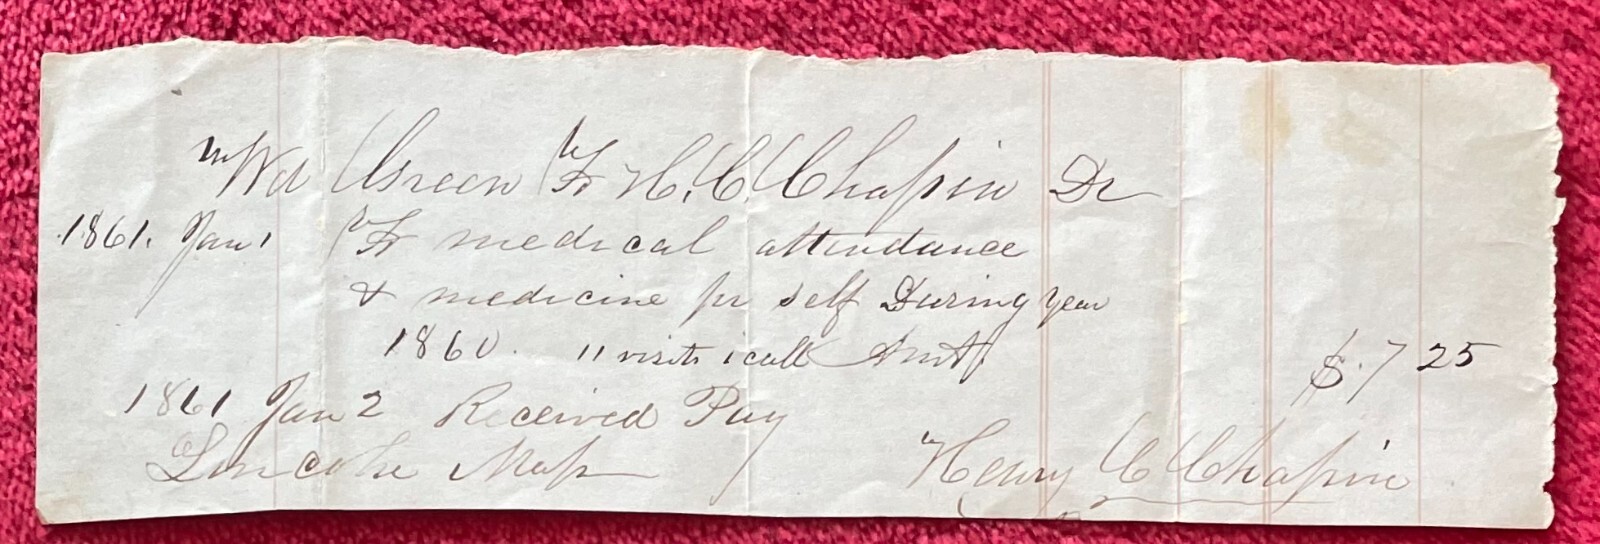 Wd Green To H. C. Chapin Dr
1861. Jan 1 To medical attendance
& medicine for self During year
1860. 11 visits 1 call Amt $.7 25
1861 Jan 2 Received Pay
Lincoln Mass Henry C Chapin